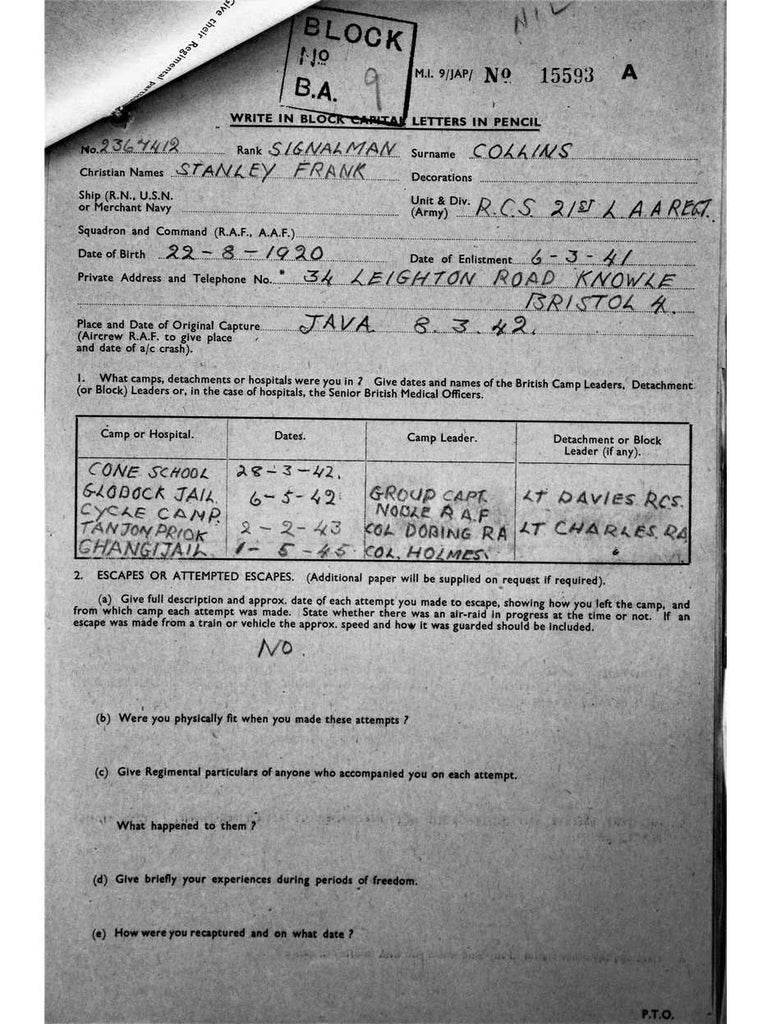 Give their Regimental
NIL
BLOCK
No
B.A. 9
M.I. 9/JAP/ No 15593 A
WRITE IN BLOCK CAPITAL LETTERS IN PENCIL
No. 2367412 Rank SIGNALMAN Surname COLLINS
Christian Names STANLEY FRANK Decorations
Ship (R.N., U.S.N. or Merchant Navy Unit & Div. (Army) R.C.S. 21ST L.A.A REGT.
Squadron and Command (R.A.F., A.A.F.)
Date of Birth 22-8-1920 Date of Enlistment 6-3-41
Private Address and Telephone No. 34 LEIGHTON ROAD KNOWLE
BRISTOL 4.
Place and Date of Original Capture JAVA 8.3.42.
(Aircrew R.A.F. to give place
and date of a/c crash).
1. What camps, detachments or hospitals were you in? Give dates and names of the British Camp Leaders, Detachment
(or Block) Leaders or, in the case of hospitals, the Senior British Medical Officers.
Camp or Hospital. Dates. Camp Leader. Detachment or Block
Leader (if any).
CONE SCHOOL 28-3-42.
GLODOCK JAIL 6-5-42 GROUP CAPT. LT DAVIES RCS.
CYCLE CAMP NOBLE R.A.F
TANJONPRIOK 2-2-43 COL DOBING RA LT CHARLES. RA
CHANGI JAIL 1-5-45 COL. HOLMES.
2. ESCAPES OR ATTEMPTED ESCAPES. (Additional paper will be supplied on request if required).
(a) Give full description and approx. date of each attempt you made to escape, showing how you left the camp, and
from which camp each attempt was made. State whether there was an air-raid in progress at the time or not. If an
escape was made from a train or vehicle the approx. speed and how it was guarded should be included.
NO.
(b) Were you physically fit when you made these attempts?
(c) Give Regimental particulars of anyone who accompanied you on each attempt.
What happened to them?
(d) Give briefly your experiences during periods of freedom.
(e) How were you recaptured and on what date?
P.T.O.